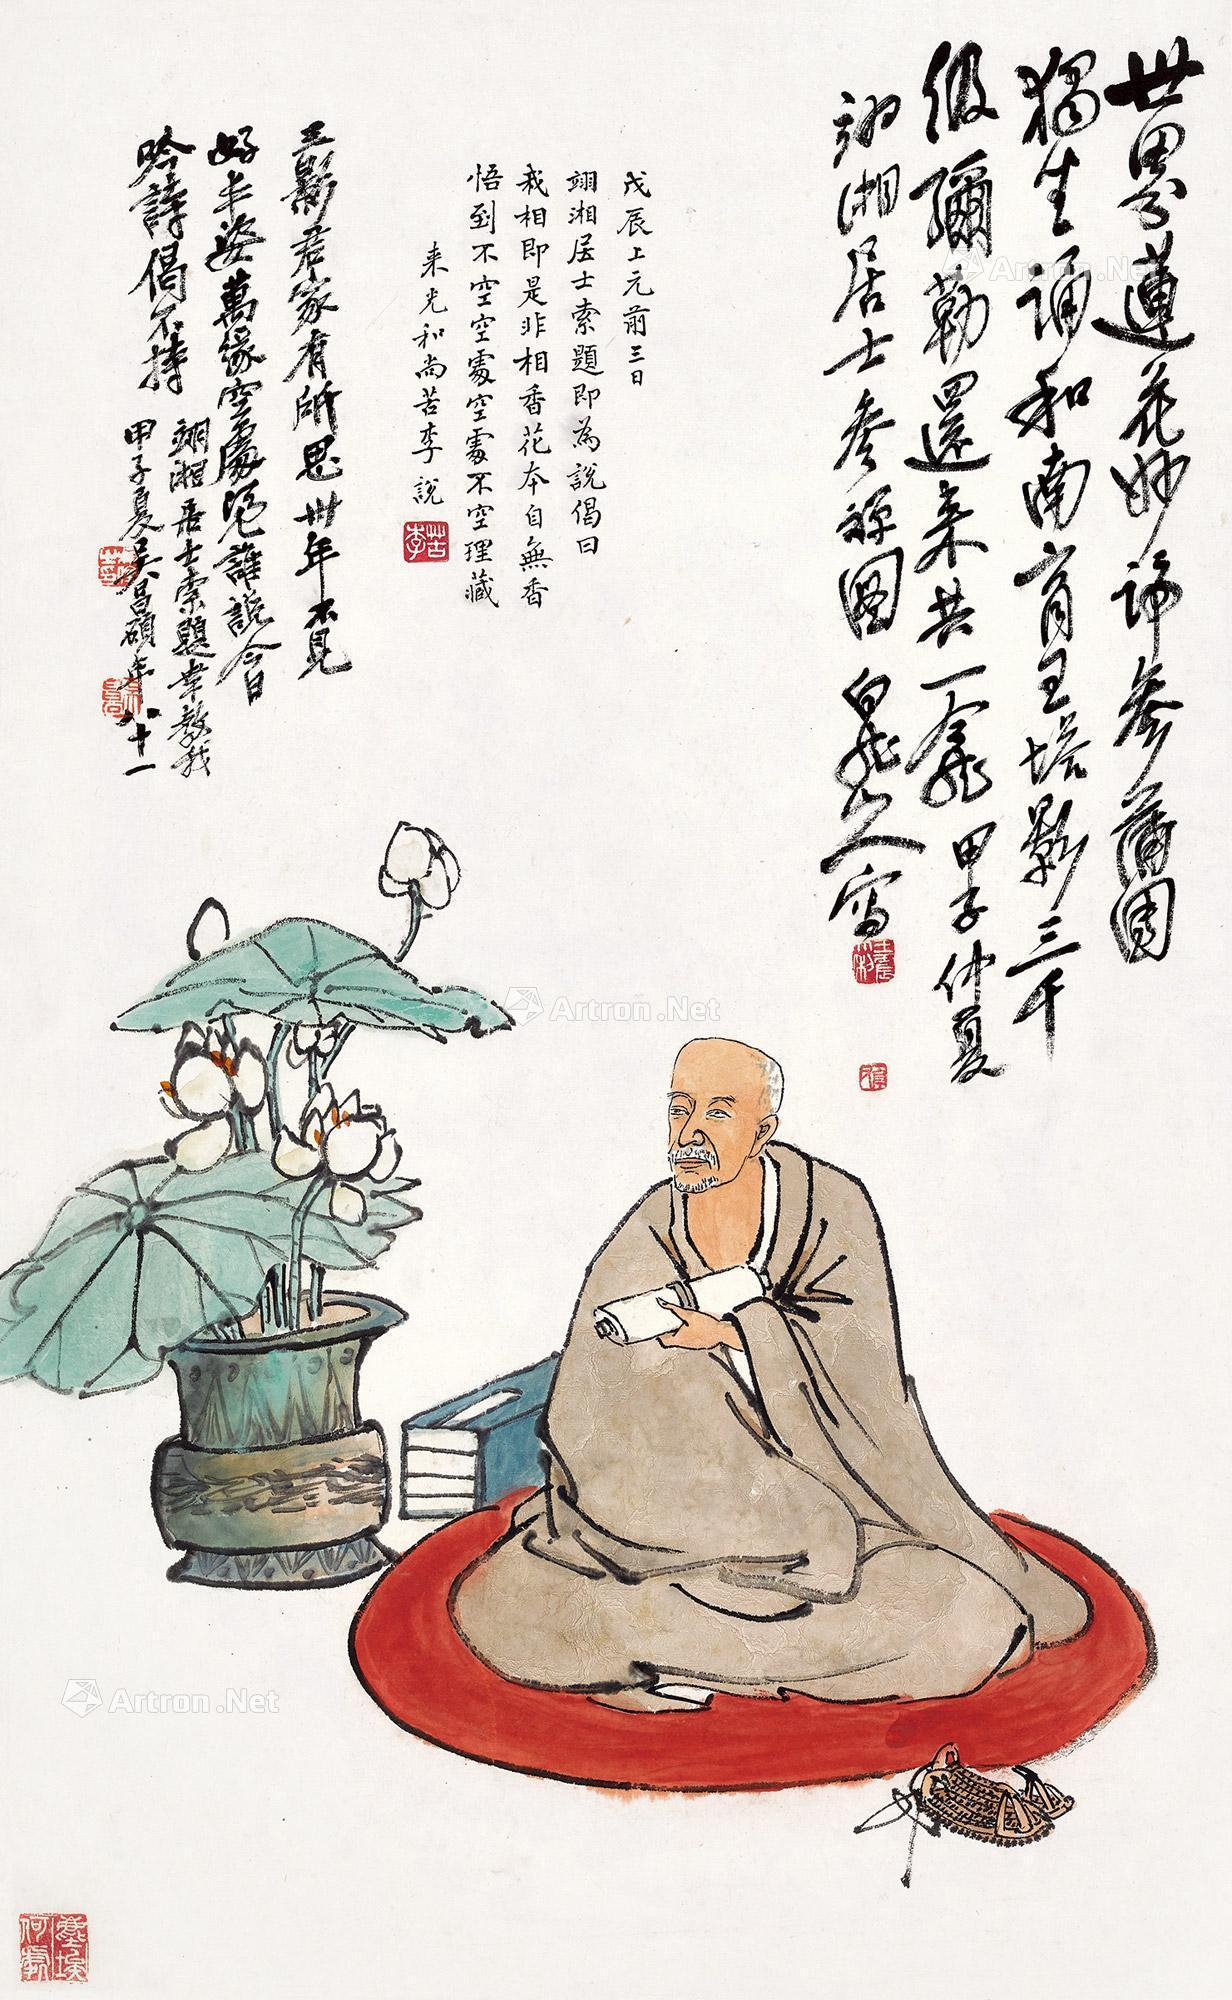 世界蓮花妙諦參蒲團
獨坐誦和南育王塔影三千
級彌勒還來共一龕 甲子仲夏
翊湘居士參禪圖 白龍山人寫
戊辰上元前三日
翊湘居士索題即為說偈曰
我相即是非相香花本自無香
悟到不空空處空處不空理藏
來光和尚苦李說
苦李
王影君家有所思卅年不見
好丰姿萬緣空處憑誰說今日
吟詩偈不持
翊湘居士索題幸教我
甲子夏吳昌碩年八十一
Artron.Net
Artron.Net
Artron.Net
Artron.Net